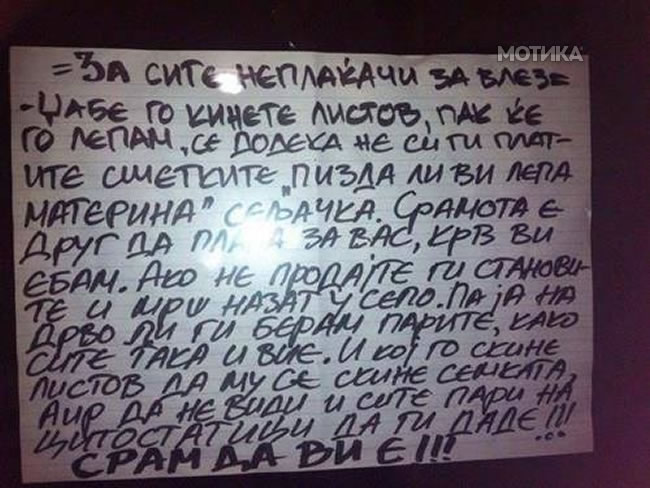 МОТИКА
=ЗА СИТЕ НЕПЛАЌАЧИ ЗА ВЛЕЗ=
-ЏАБЕ ГО КИНЕТЕ ЛИСТОВ, ПАК ЌЕ
ГО ЛЕПАМ, СЕ ДОДЕКА НЕ СИ ГИ ПЛАТ-
ИТЕ СМЕТКИТЕ „ПИЗДА ЛИ ВИ ЛЕПА
МАТЕРИНА" СЕЉАЧКА. СРАМОТА Е
ДРУГ ДА ПЛАЌА ЗА ВАС, КРВ ВИ
ЕБАМ. АКО НЕ ПРОДАЈТЕ ГИ СТАНОВИ-
ТЕ И МРШ НАЗАТ У СЕЛО. ПА ЈА НА
ДРВО ЛИ ГИ БЕРАМ ПАРИТЕ, КАКО
СИТЕ ТАКА И ВИЕ. И КОЈ ГО СКИНЕ
ЛИСТОВ ДА МУ СЕ СКИНЕ СЕМКАТА,
АИР ДА НЕ ВИДИ И СИТЕ ПАРИ НА
ЦИТОСТАТИЦИ ДА ГИ ДАДЕ!!!
СРАМ ДА ВИ Е!!! ...